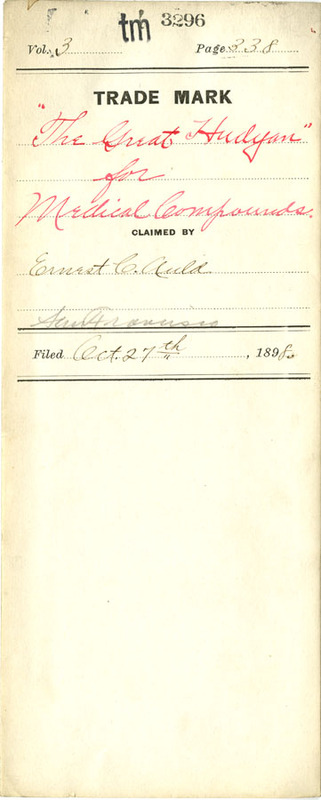 tm 3296
Vol. 3 Page 338
TRADE MARK
"The Great Hudyan"
for
Medical Compounds.
CLAIMED BY
Ernest C. Auld
San Francisco
Filed Oct. 27th, 1898.